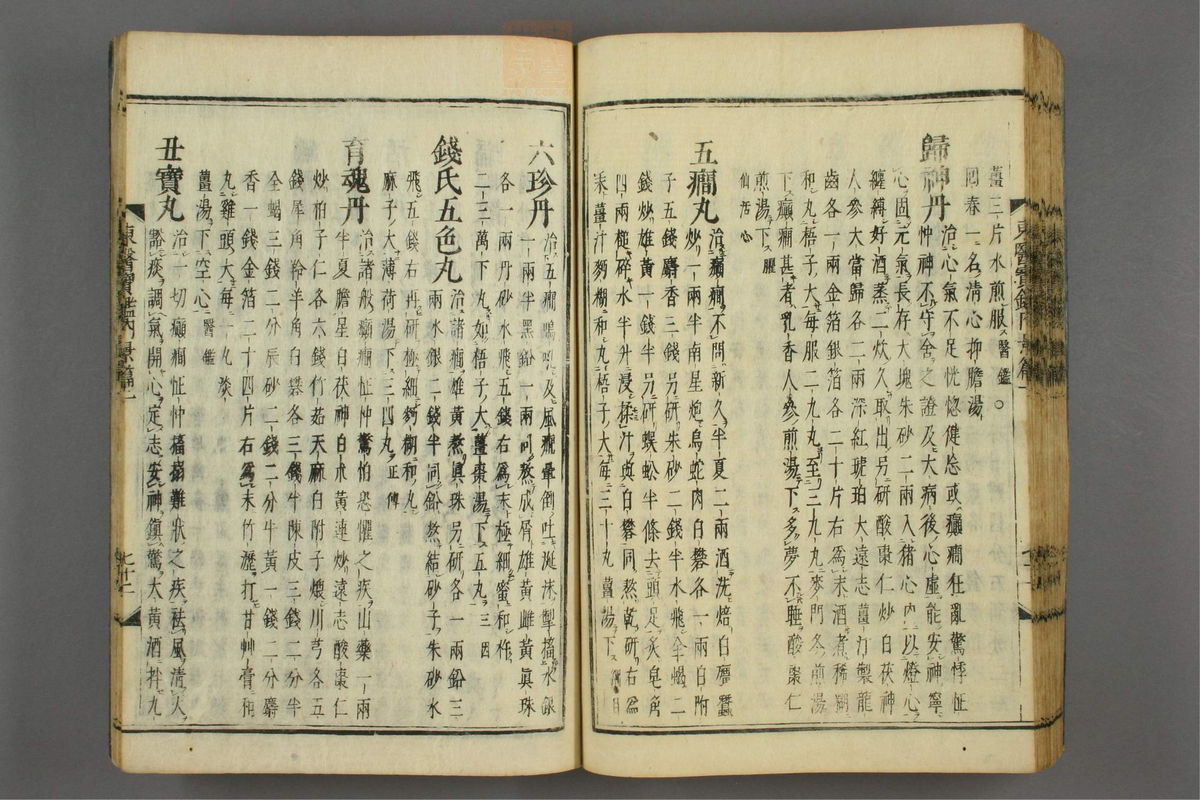 薑三片水煎服醫鑑○
回春一名清心抑膽湯
歸神丹治心氣不足恍惚健忘或癲癇狂亂驚悸怔
忡神不守舍之證及大病後心虛能安神寧
心固元氣長存大塊朱砂二兩入猪心內以燈心
纏縛好酒蒸二炊久取出另研酸棗仁炒白茯神
人參大當歸各二兩深紅琥珀大遠志薑汁製龍
齒各一兩金箔銀箔各二十片右爲末酒煮稀糊
和丸梧子大每服二九丸至三九丸麥門冬煎湯
下癲癇甚者乳香人參煎湯下多夢不睡酸棗仁
煎湯下
五癇丸治癲癇不問新久半夏二兩酒洗焙白殭蠶
炒一兩半南星炮烏蛇肉白礬各一兩白附
子五錢麝香三錢另研朱砂二錢半水飛全蝎二
錢炒雄黃一錢半另研蜈蚣半條去頭足炙皂角
四兩槌碎水半升浸揉汁與白礬同熬乾研右爲
末薑汁麪糊和丸梧子大每三十丸薑湯下
東醫寶鑑內景篇一
六珍丹治五癇鳴叫及風癇暈倒吐涎沫掣搐水銀
一兩半黑鉛一兩同熬成屑雄黃雌黃眞珠
各一兩丹砂水飛五錢右爲末極細蜜和杵
二三萬下丸如梧子大薑棗湯下五丸三因
錢氏五色丸治諸癇雄黃熬眞珠另研各一兩鉛三
兩水銀二錢半同鉛熬結砂子朱砂水
飛五錢右再研極細麪糊和丸
麻子大薄荷湯下三四丸正傳
育魂丹治諸般癲癇怔忡驚怕恐懼之疾山藥一兩
半夏膽星白茯神白朮黃連炒遠志酸棗仁
炒柏子仁各六錢竹茹天麻白附子煨川芎各五
錢犀角羚羊角白礬各三錢半陳皮三錢二分半
全蝎三錢二分辰砂二錢二分牛黃一錢二分麝
香一錢金箔二十四片右爲末竹瀝打甘艸膏和
丸雞頭大每一丸淡
薑湯下空心醫鑑
丑寶丸治一切癲癇怔忡搐搦難狀之疾祛風清火
豁痰調氣開心定志安神鎭驚大黃酒拌九
東醫寶鑑內景篇一
七十二